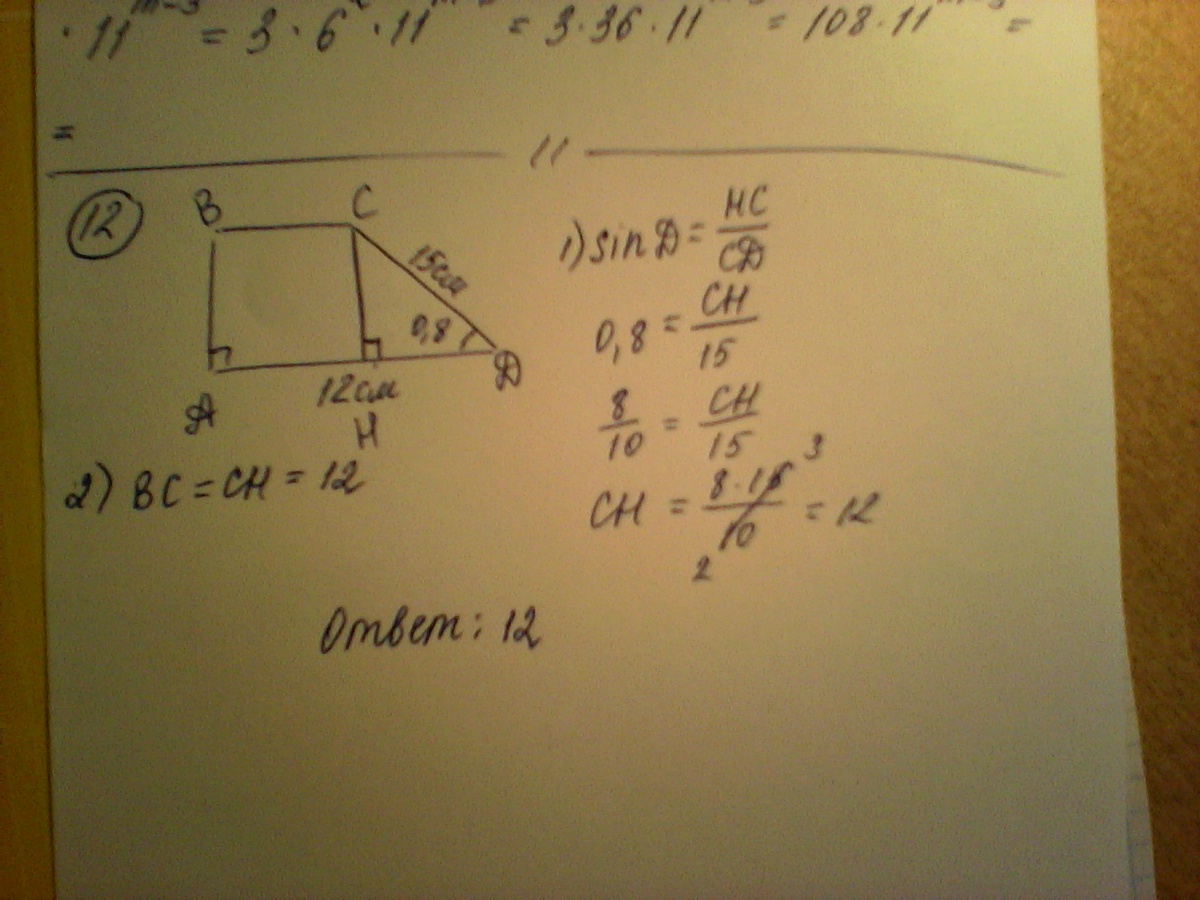 · 11^{m-3} = 3 · 6 · 11 = 3 · 36 · 11 = 108 · 11 =
=
11
12
B C
15см
0,8
12см
A H D
1) sin D = HC/CD
0,8 = CH/15
8/10 = CH/15
CH = 8 · 15/10 = 12
3
2
2) BC = CH = 12
Ответ: 12